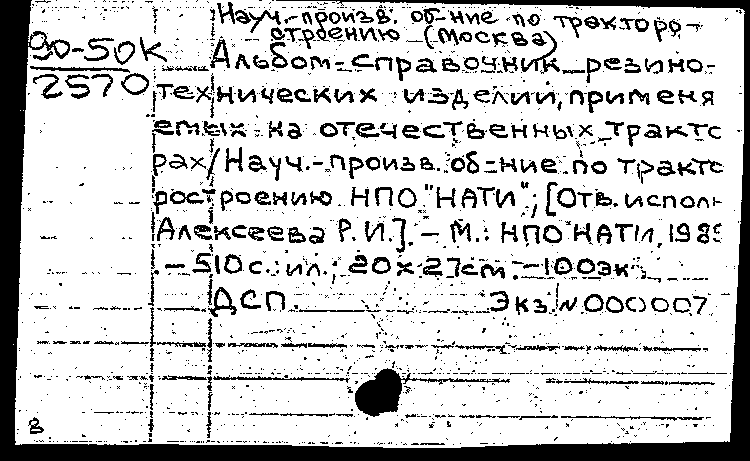 Науч.-произв. об-ние по тракторо-
строению (Москва)
90-50К
2570
Альбом-справочник резино-
технических изделий, применя
емых на отечественных тракто
рах/Науч.-произв. об-ние по тракто
ростроению НПО "НАТИ"; [Отв. исполн
Алексеева Р.И.]. - М.: НПО НАТИ, 1989
.- 510 с.: ил.; 20 х 27 см. - 100 эк
ДСП. Экз. N 000007
в